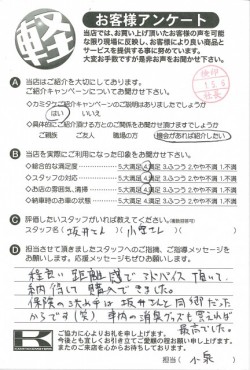 軽 お客様アンケート
当店では、お買い上げ頂いたお客様の声を可能
な限り現場に反映し、お客様により良い商品と
サービスを提供する事に努めています。
大変お手数ですが是非お声をお聞かせ下さい。
A 当店はご紹介を大切にしております。
ご紹介キャンペーンについてお聞かせ下さい。
◇カミタケご紹介キャンペーンのご説明はありましたでしょうか
はい いいえ
◇具体的にご紹介頂ける方とのご関係をお聞かせ頂けますでしょうか
ご親族 ご友人 職場の方 機会があれば紹介したい
B 当店を実際にご利用になった印象をお聞かせ下さい。
◇総合的な満足度 5.大満足 4.満足 3.ふつう 2.やや不満 1.不満
◇スタッフの対応 5.大満足 4.満足 3.ふつう 2.やや不満 1.不満
◇お店の雰囲気、清掃 5.大満足 4.満足 3.ふつう 2.やや不満 1.不満
◇納車時のお車の状態 5.大満足 4.満足 3.ふつう 2.やや不満 1.不満
C 評価したいスタッフがいれば教えてください。
スタッフ名( 坂井さん )( 小宮さん )
D 担当させて頂きましたスタッフへのご指摘、ご指導メッセージを
お願いします。応援メッセージもぜひお願いします。
程良い距離感でアドバイス頂いて、
納得して購入できました。
保険の決め手は坂井さんと同郷だった
からです(笑) 車内の消臭グッズも貰えれば
最高でした。
ご協力に心よりお礼を申し上げます。
今後とも宜しくお引き立てご愛顧の程お願い申し上げます。
またのご来店を心からお待ちしております。
担当( 小泉 )